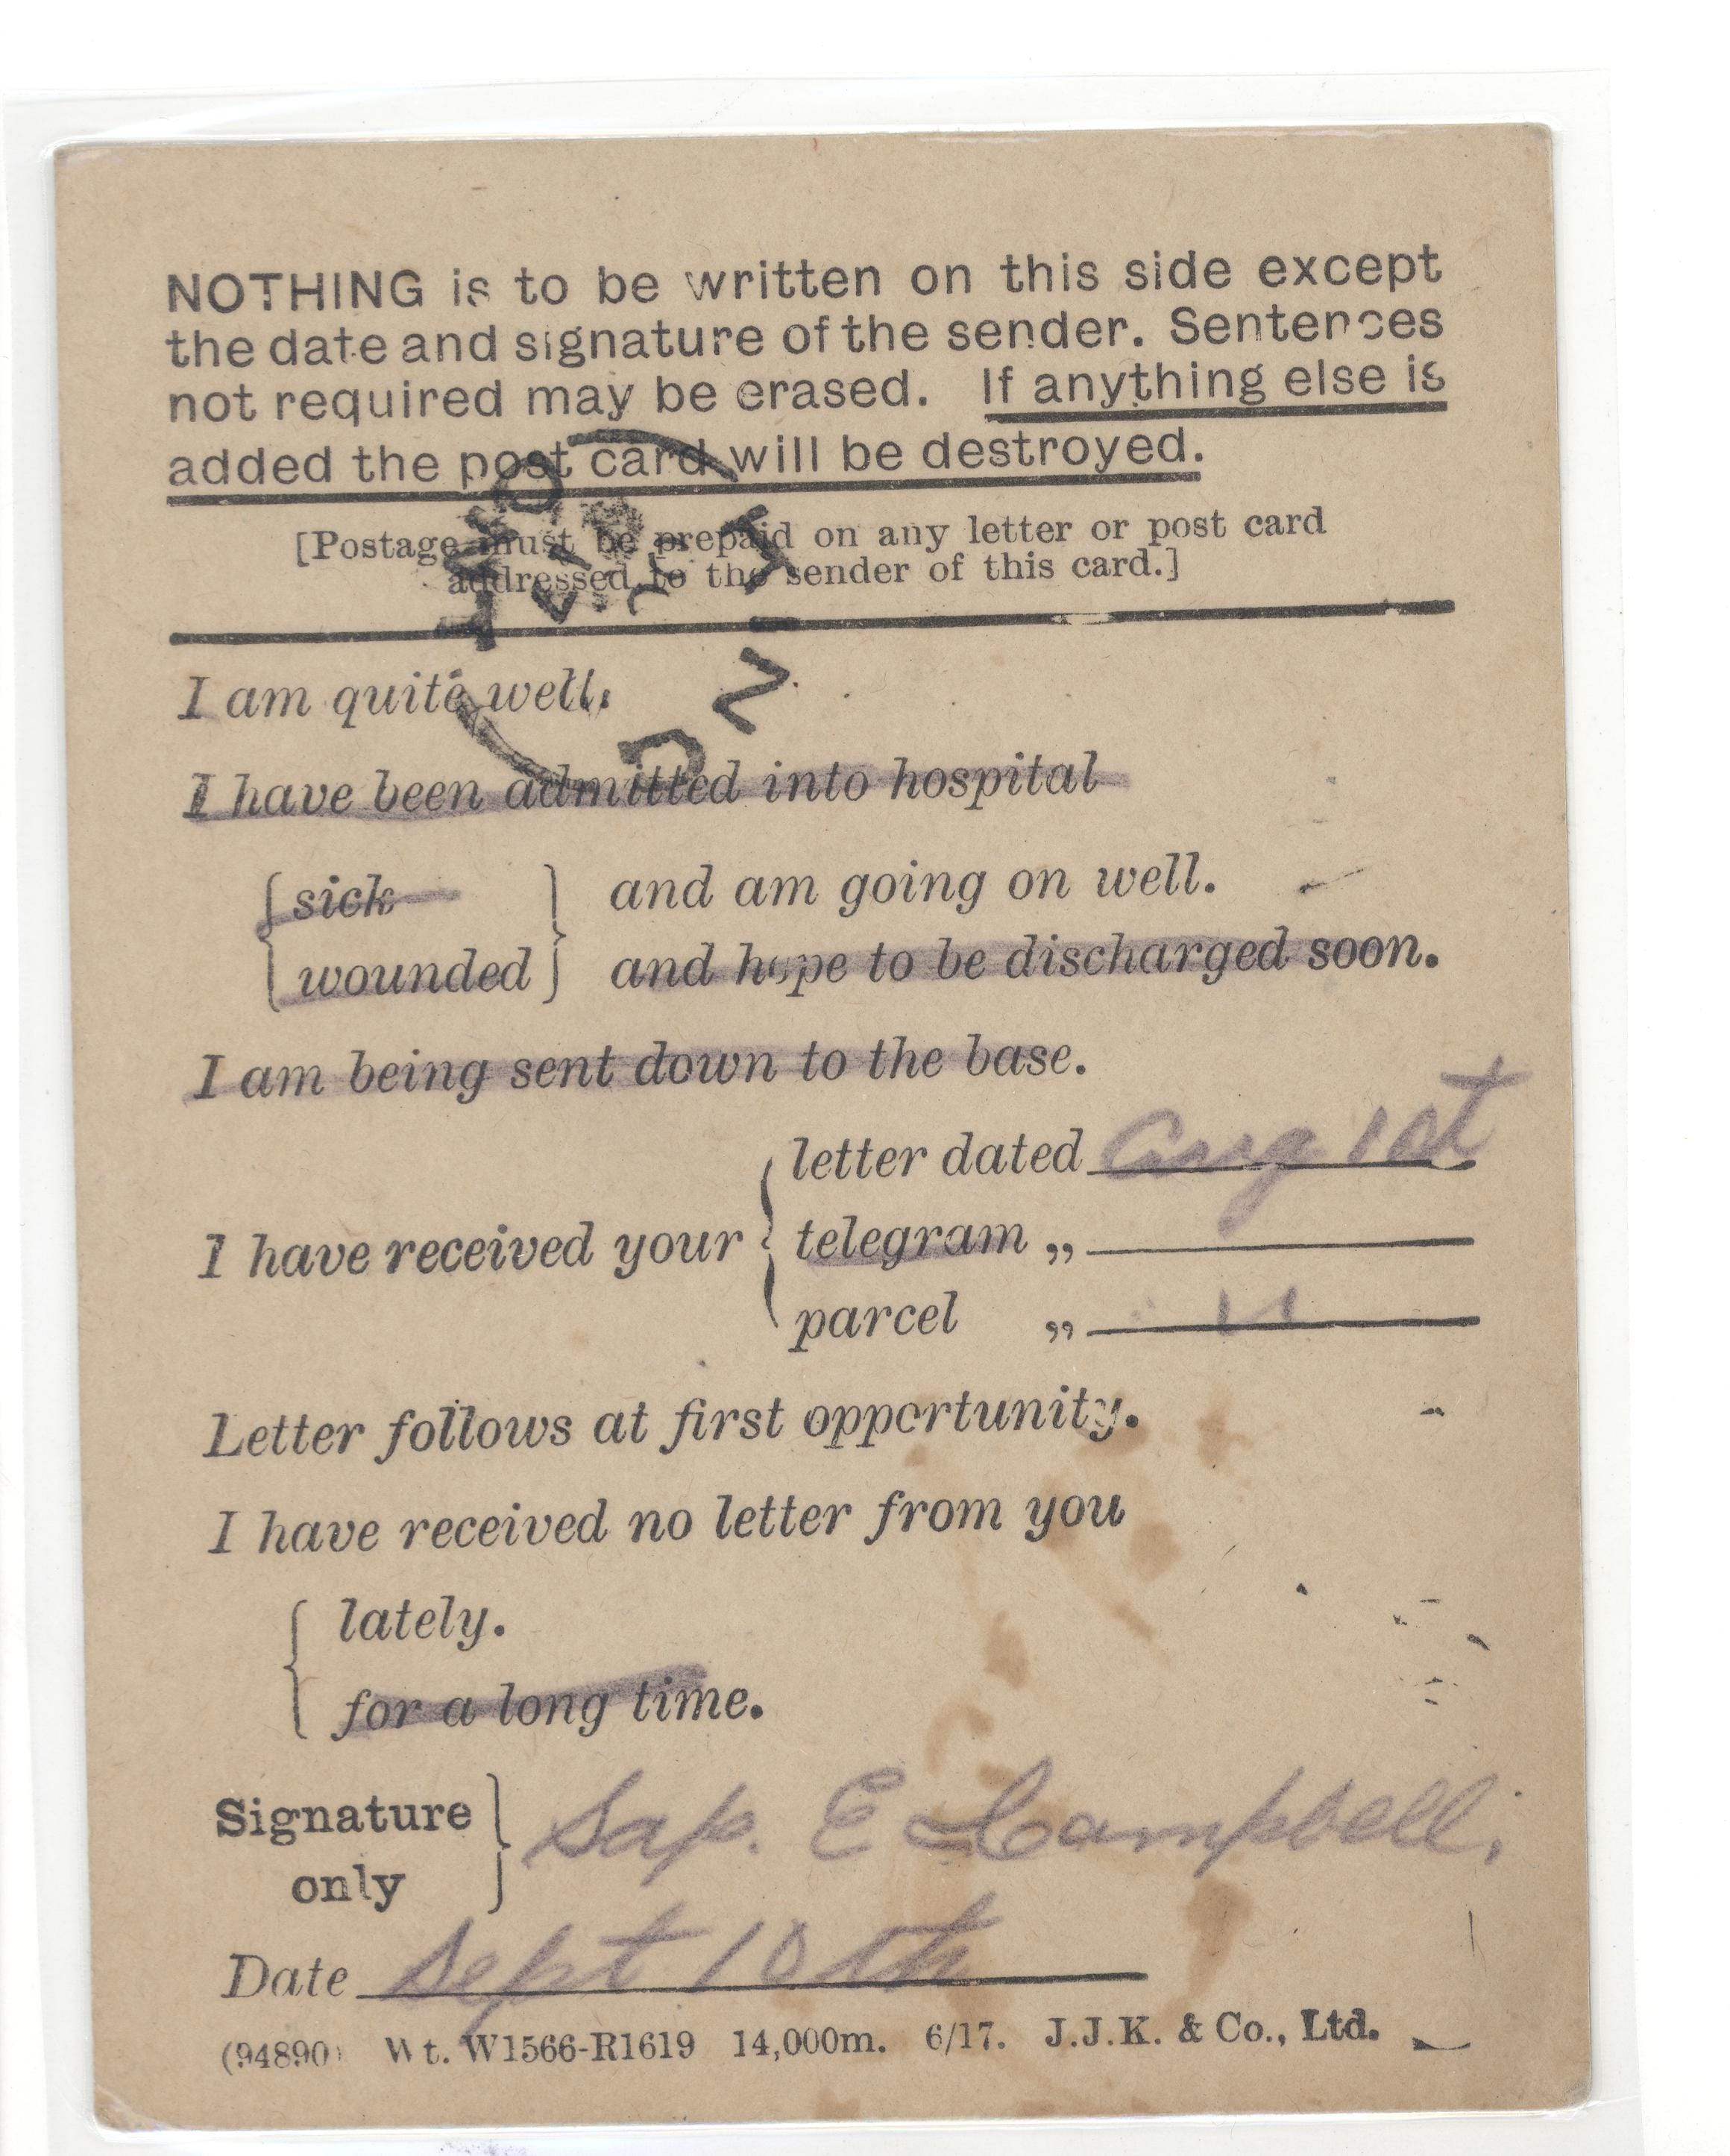 NOTHING is to be written on this side except
the date and signature of the sender. Sentences
not required may be erased. If anything else is
added the post card will be destroyed.
[Postage must be prepaid on any letter or post card
addressed to the sender of this card.]
I am quite well.
I have been admitted into hospital
{ sick } and am going on well.
{ wounded } and hope to be discharged soon.
I am being sent down to the base.
letter dated Aug 1st
I have received your { telegram „
parcel „ "
Letter follows at first opportunity.
I have received no letter from you
{ lately.
for a long time.
Signature } Sap. E Campbell.
only
Date Sept 10th
(94890) Wt. W1566-R1619 14,000m. 6/17. J.J.K. & Co., Ltd.